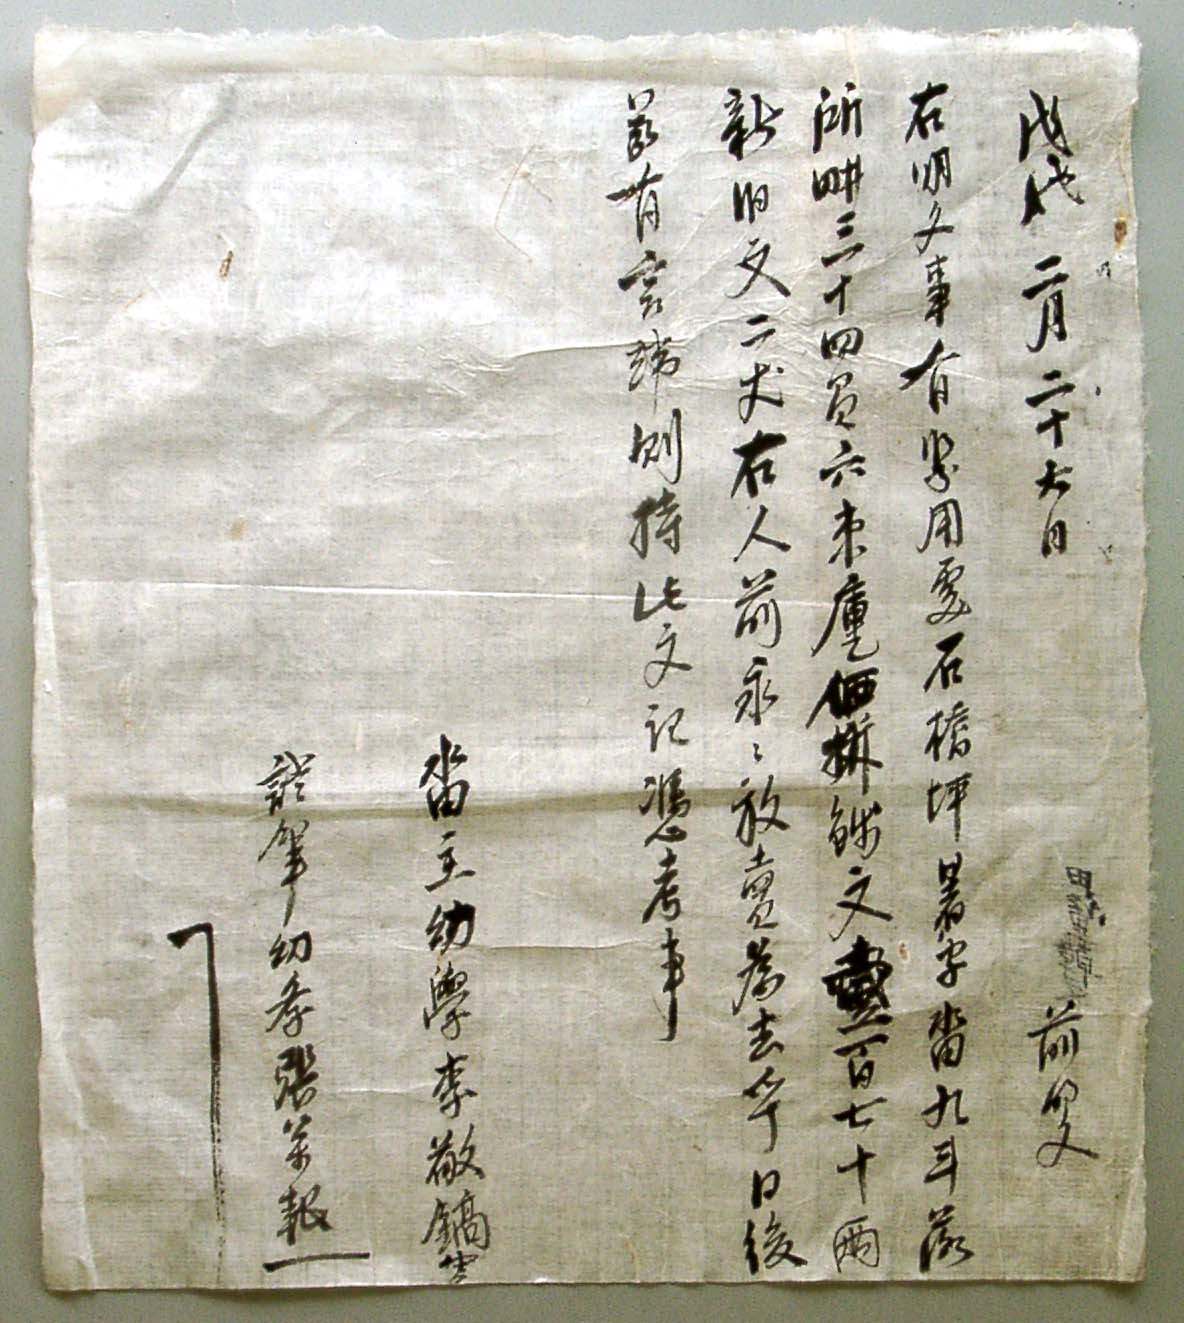 戊戌二月二十六日 前明文
右明文事有緊用處石橋坪暑字畓九斗落
所畊三十四負六束庫乙価折錢文壹百七十兩
新旧文二丈右人前永〻放賣為去乎日後
若有雜談則持此文記憑考事
畓主幼學李敬鎬
證筆幼學張萬報